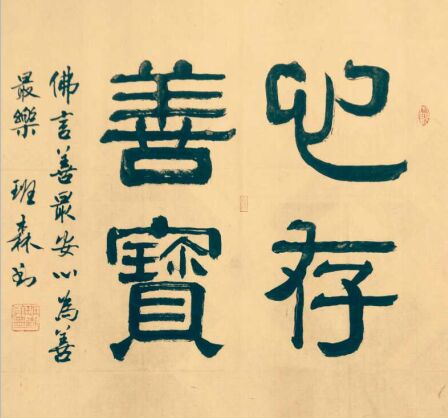 心存
善寶
佛言善最安心為善
最樂 班森